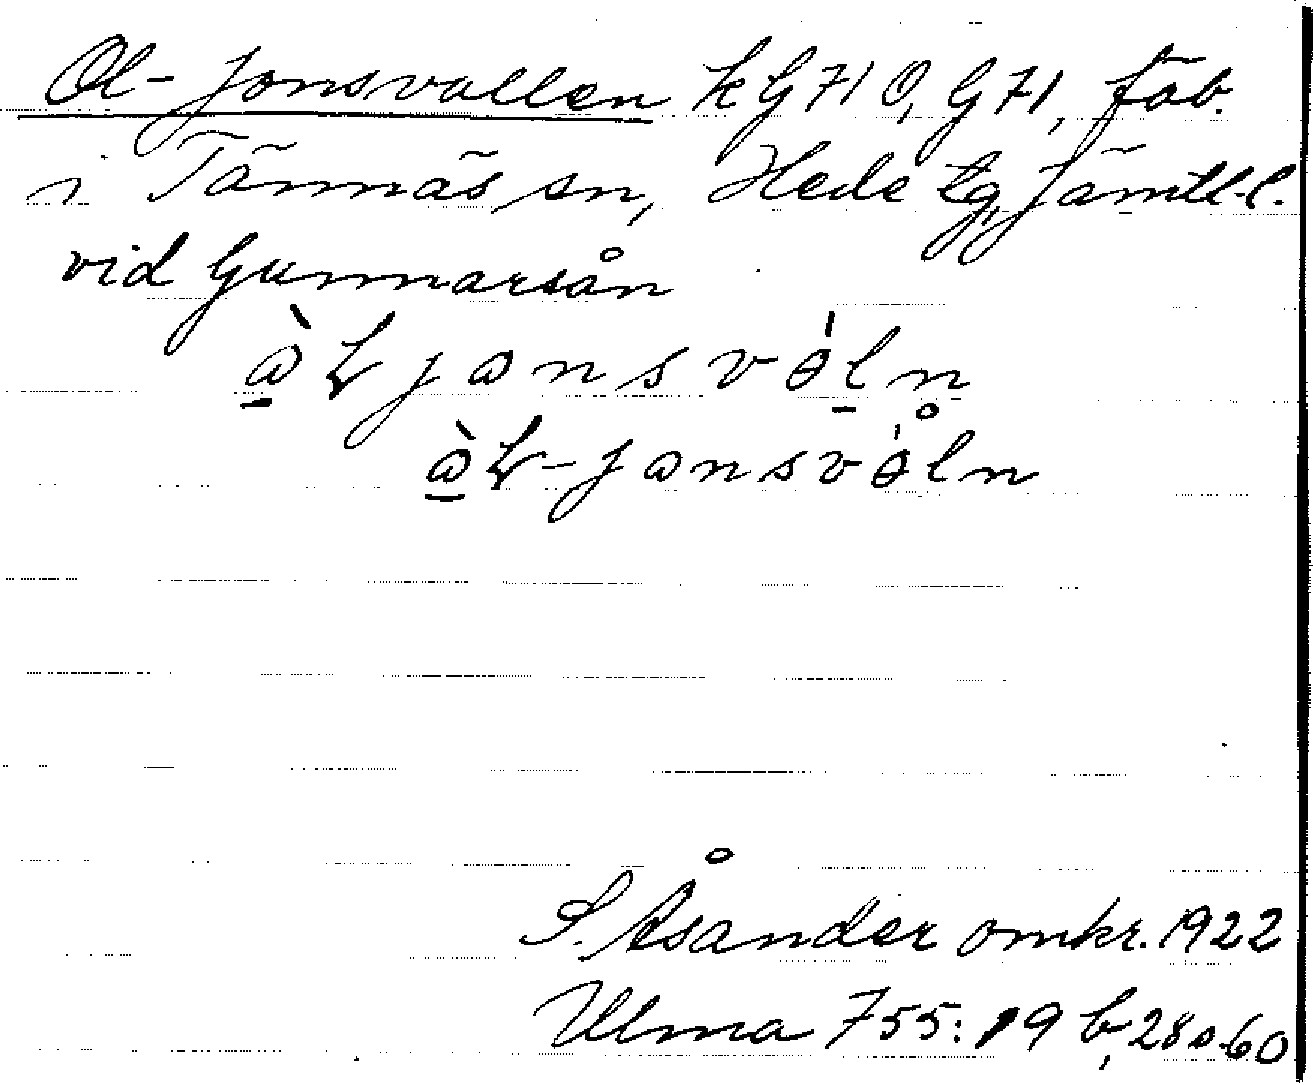 Ol-Jonsvallen k G71 O, G71, fäb.
i Tännäs sn, Hede tg, Jämtl.l.
vid Gunnarsån
àLjɷnsvòln̥
àL-jɷnsvòln
S. Åsander omkr. 1922
Ulma 755: 19 b, 28 o 60